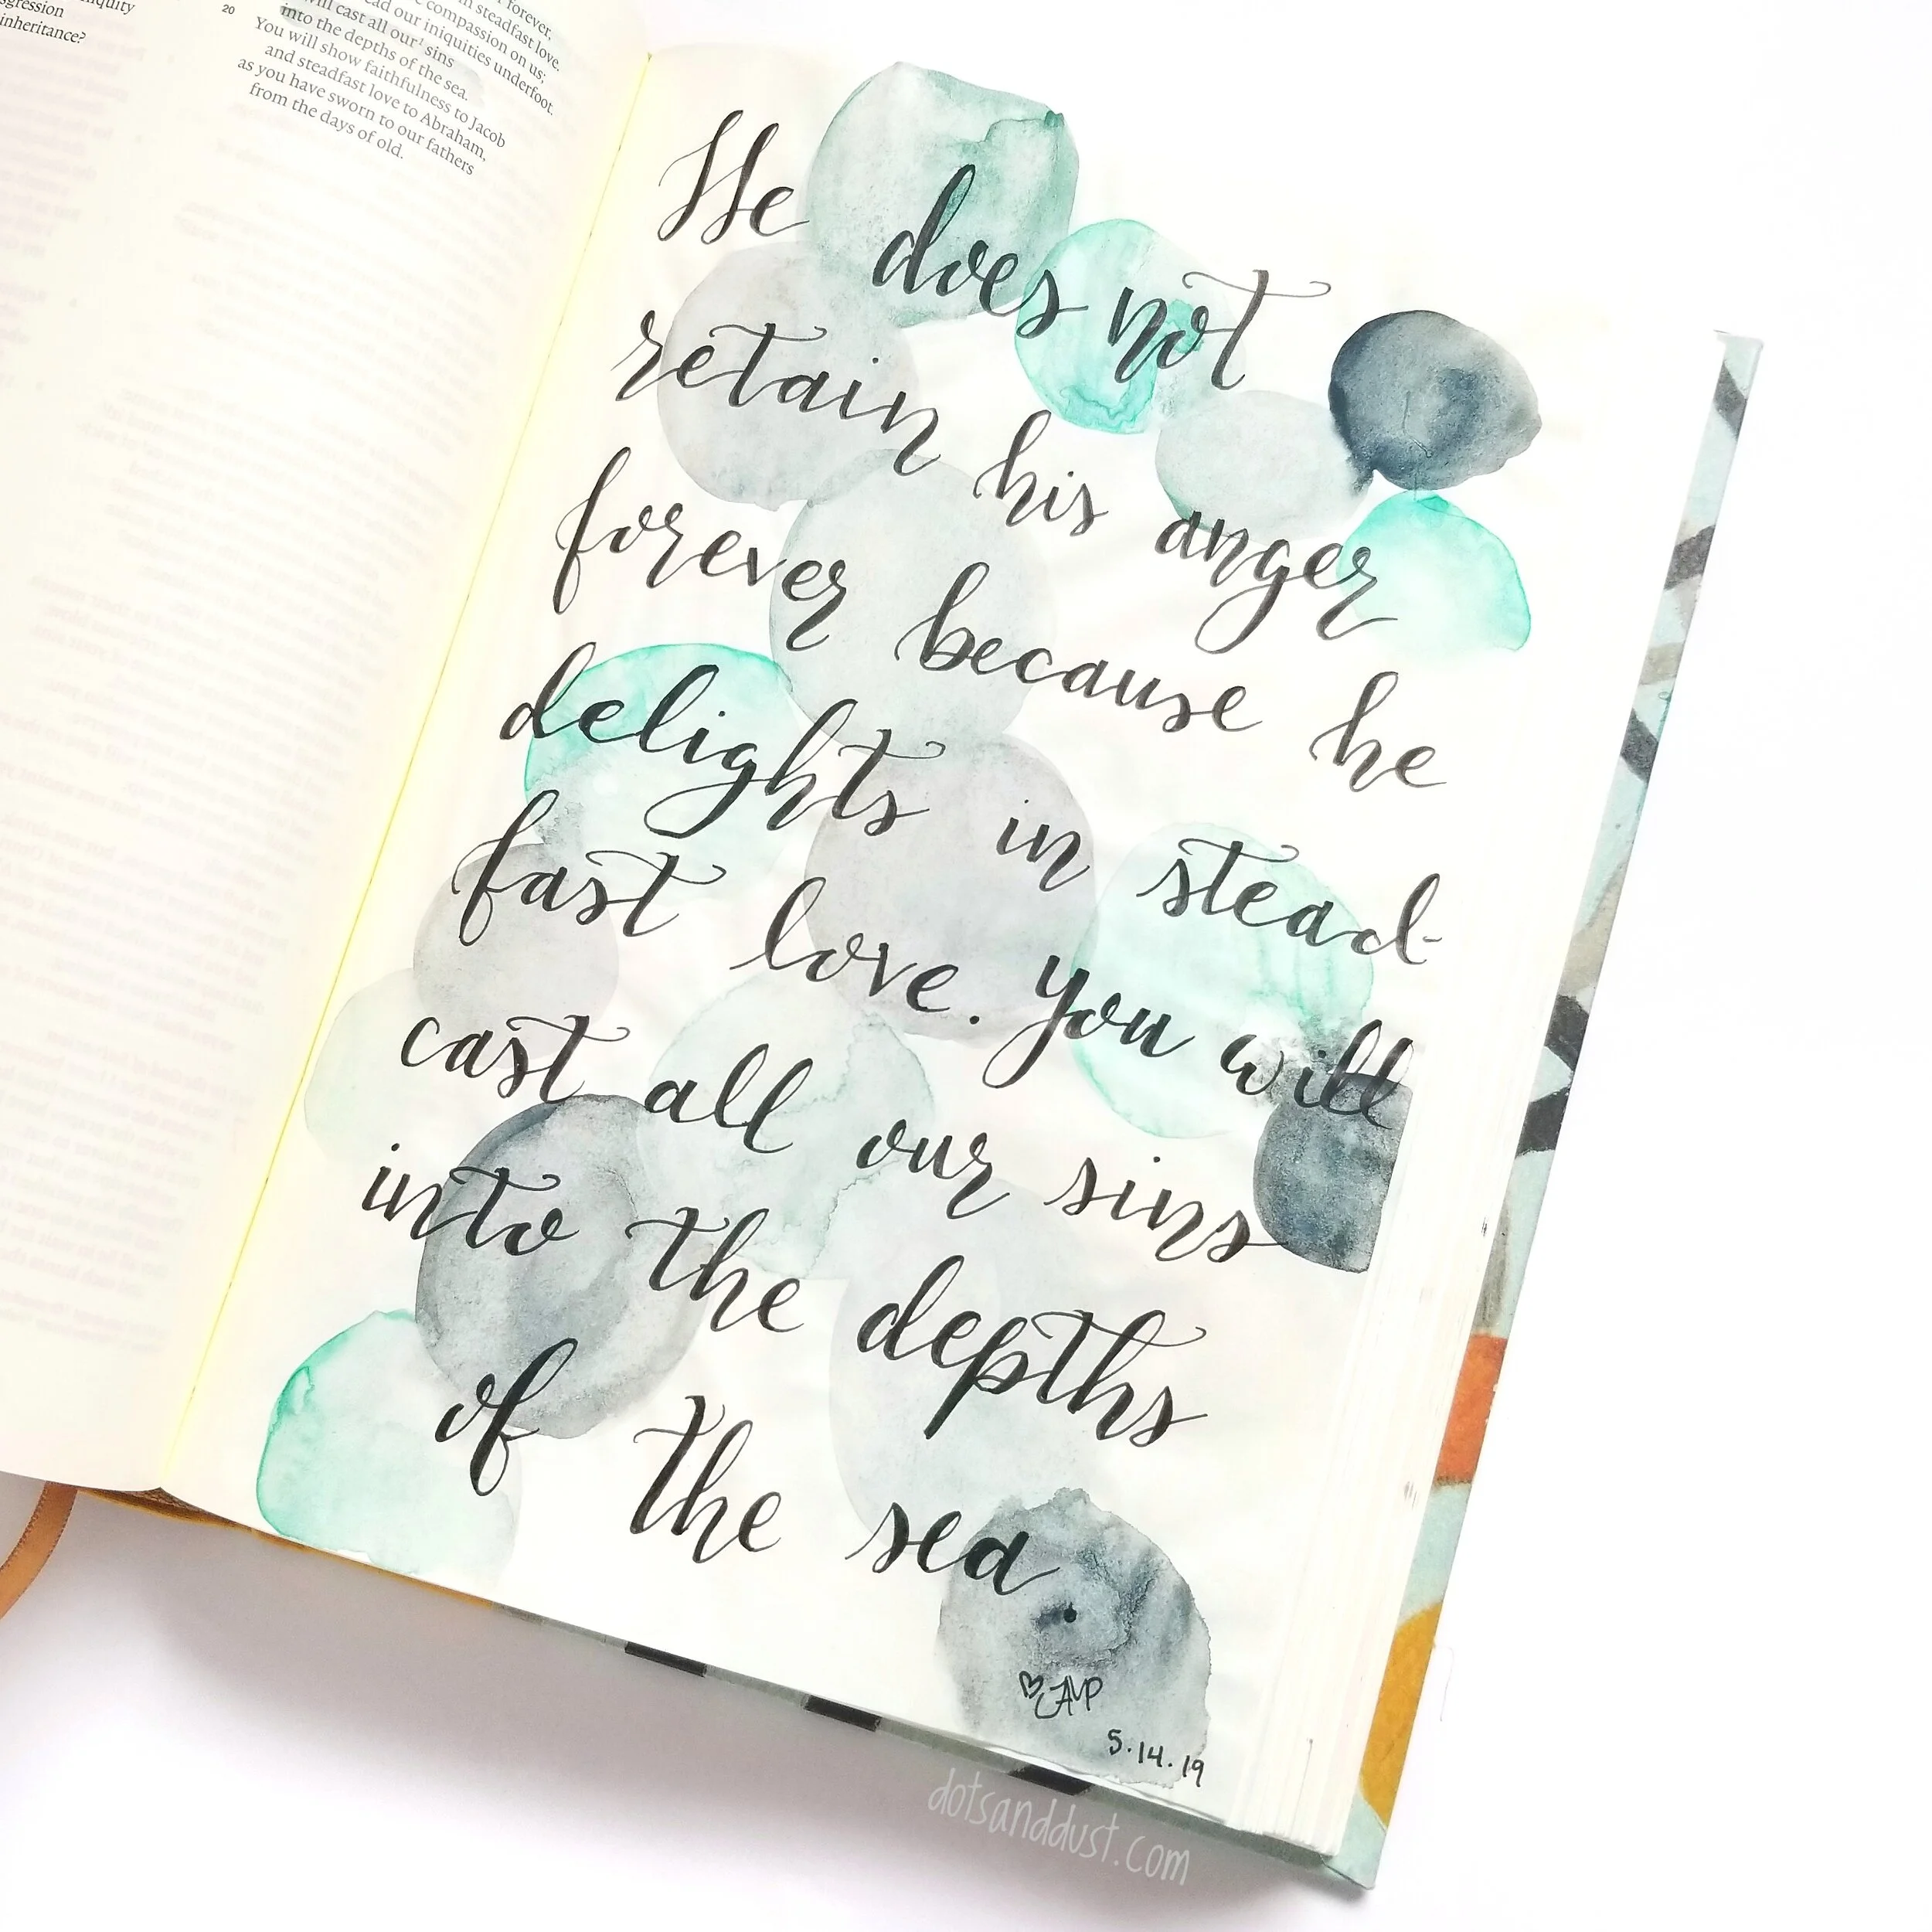 iquity
sgression
inheritance?
forever,
in steadfast love.
compassion on us;
ead our iniquities underfoot.
will cast all our² sins
into the depths of the sea.
20 You will show faithfulness to Jacob
and steadfast love to Abraham,
as you have sworn to our fathers
from the days of old.
He does not
retain his anger
forever because he
delights in stead-
fast love. You will
cast all our sins
into the depths
of the sea.
♡ JAVP
5.14.19
dotsanddust.com